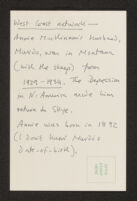 West Coast network —
Annie MacKinnon's husband,
Murdo, was in Montana
(with the sheep) from
1929-1934. The Depression
in N. America made him
return to Skye.
Annie was born in 1892
(I don't know Murdo's
date-of-birth).